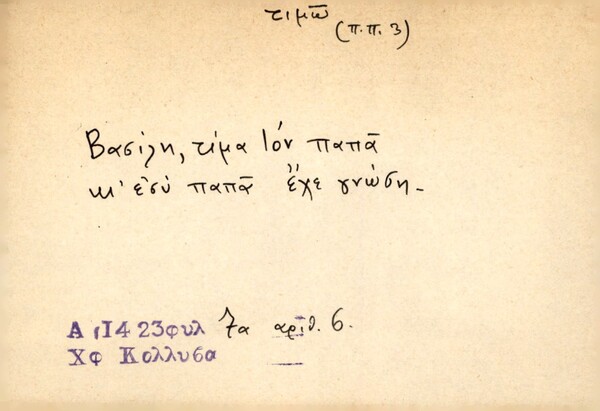 τιμῶ
(π.π. 3)
Βασίλη, τίμα τόν παπᾶ
κι' ἐσύ παπᾶ ἔχε γνώση.
Α 1423φυλ 7α αριθ. 6.
Χφ Κολλυσα